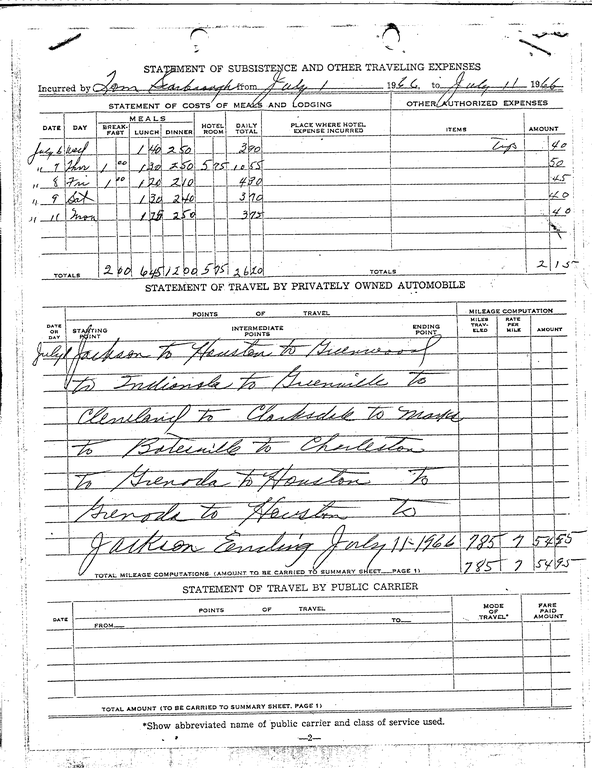 STATEMENT OF SUBSISTENCE AND OTHER TRAVELING EXPENSES
Incurred by Tom Scarbrough from July 1 1966, to July 11 1966
STATEMENT OF COSTS OF MEALS AND LODGING OTHER AUTHORIZED EXPENSES
DATE DAY MEALS BREAK-FAST LUNCH DINNER HOTEL ROOM DAILY TOTAL PLACE WHERE HOTEL EXPENSE INCURRED ITEMS AMOUNT
July 6 Wed 1 40 2 50 3 90 Tips 40
" 7 Thu 1 00 1 30 2 50 5 75 10 55 50
" 8 Fri 1 00 1 20 2 10 4 30 45
" 9 Sat 1 30 2 40 3 70 40
" 11 Mon 1 25 2 50 3 75 40
TOTALS 2 00 6 45 12 00 5 75 26 20 TOTALS 2 15
STATEMENT OF TRAVEL BY PRIVATELY OWNED AUTOMOBILE
DATE OR DAY POINTS OF TRAVEL MILEAGE COMPUTATION
STARTING POINT INTERMEDIATE POINTS ENDING POINT MILES TRAV-ELED RATE PER MILE AMOUNT
July 1 Jackson to Houston to Greenwood
to Indianola to Greenville to
Cleveland to Clarksdale to Marks
to Batesville to Charleston
to Grenada to Houston to
Grenada to Houston to
Jackson Ending July 11-1966 785 7 54 95
TOTAL MILEAGE COMPUTATIONS (AMOUNT TO BE CARRIED TO SUMMARY SHEET PAGE 1) 785 7 54 95
STATEMENT OF TRAVEL BY PUBLIC CARRIER
DATE POINTS OF TRAVEL MODE OF TRAVEL* FARE PAID AMOUNT
FROM TO
TOTAL AMOUNT (TO BE CARRIED TO SUMMARY SHEET, PAGE 1)
*Show abbreviated name of public carrier and class of service used.
—2—